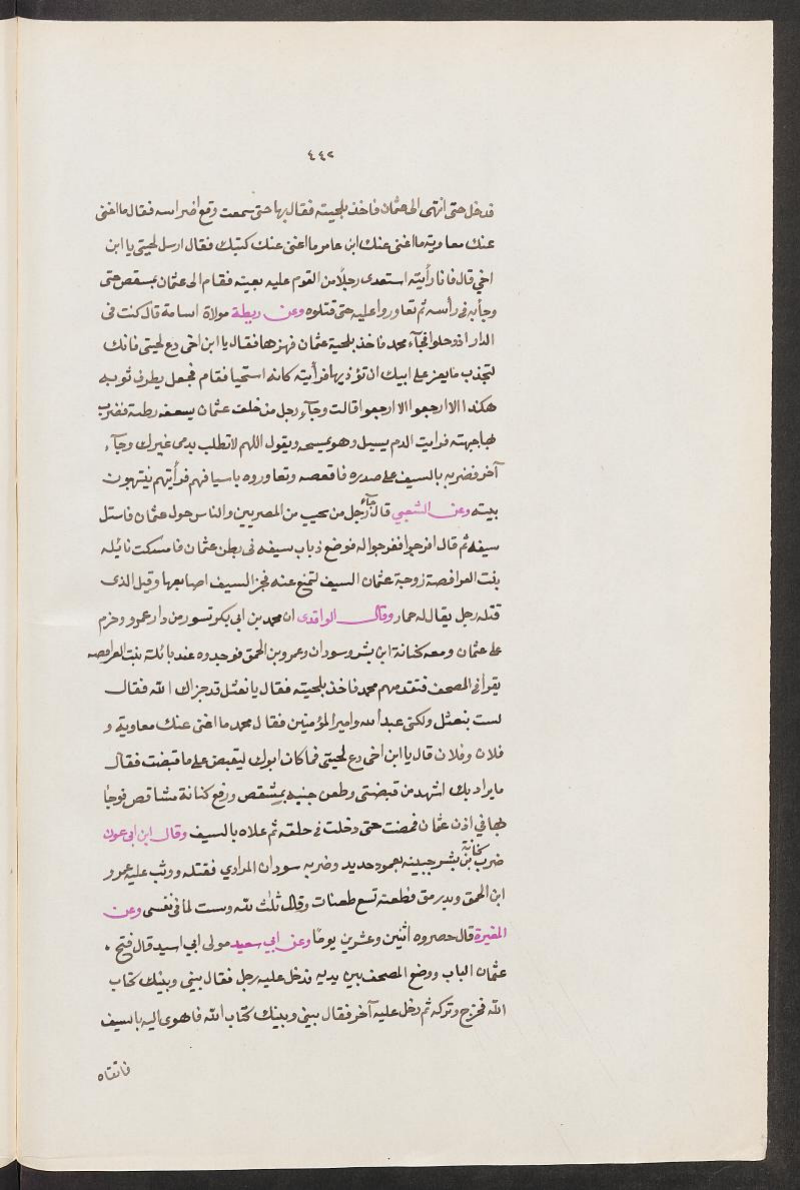 ٤٤٢
فدخل حتى انتهى الى عثمان فاخذ بلحيته فقال بها حتى سمعت وقع اضراسه فقال ما اغنى
عنك معاوية ما اغنى عنك ابن عامر ما اغنى عنك كتبك فقال ارسل لحيتى يا ابن
اخي قال فانا رأيته استعدى رجلًا من القوم عليه بعينه فقام الى عثمان بمشقص حتى
وجأ به فى رأسه ثم تعاوروا عليه حتى قتلوه وعن ريطة مولاة اسامة قال كنت فى
الدار اذ دخلوا فجآء محمد فاخذ بلحية عثمان فهزها فقال يا ابن اخى دع لحيتى فانك
لتجذب ما يعز على ابيك ان تؤذيها فرأيته كانه استحيا فقام فجعل يطرف ثوبه
هكذا الا ارجعوا الا ارجعوا قالت وجآء رجل من خلف عثمان بسعفه رطبة فضرب
بها جبهته فرايت الدم يسيل وهو يمسحه ويقول اللهم لا تطلب بدمى غيرك وجآء
آخر فضربه بالسيف على صدره فاقعصه وتعاوروه باسيافهم فرأيتهم ينتهبون
بيته وعن الشعبي قال جآء رجل من تجيب من المصريين والناس حول عثمان فاستل
سيفه ثم قال افرجوا ففرجوا له فوضع ذباب سيفه فى بطن عثمان فامسكت نائله
بنت الفرافصة زوجة عثمان السيف لتمنع عنه فجز السيف اصابعها وقيل الذى
قتله رجل يقال له حمار وقال الواقدى ان محمد بن ابى بكر تسور من دار عمرو وحزم
على عثمان ومعه كنانة ابن بشر وسودان وعمرو بن الحمق فوجدوه عند نائلة بنت الفرافصه
يقرأ فى المصحف فتقدمهم محمد فاخذ بلحيته فقال يا نعثل قد جزاك الله فقال
لست بنعثل ولكنى عبد الله وامير المؤمنين فقال محمد ما اغنى عنك معاوية و
فلان وفلان قال يا ابن اخى دع لحيتى فما كان ابوك ليقبض على ما قبضت فقال
ما يراد بك اشد من قبضتى وطعن جنبه بمشقص ورفع كنانة مشاقص فوجأ
بها في اذن عثمان فمضت حتى دخلت فى حلقه ثم علاه بالسيف وقال ابن ابى عون
ضرب كنانة بن بشر جبينه بعمود حديد وضربه سودان المرادي فقتله ووثب عليه عمرو
ابن الحمق وبه رمق فطعنه تسع طعنات وقال ثلاث لله وست لما فى نفسى وعن
المغيرة قال حصروه اثنين وعشرين يومًا وعن ابي سعيد مولى ابي اسيد قال فتح
عثمان الباب ووضع المصحف بين يديه فدخل عليه رجل فقال بينى وبينك كتاب
الله فخرج وتركه ثم دخل عليه آخر فقال بينى وبينك كتاب الله فاهوى اليه بالسيف
فاتقاه